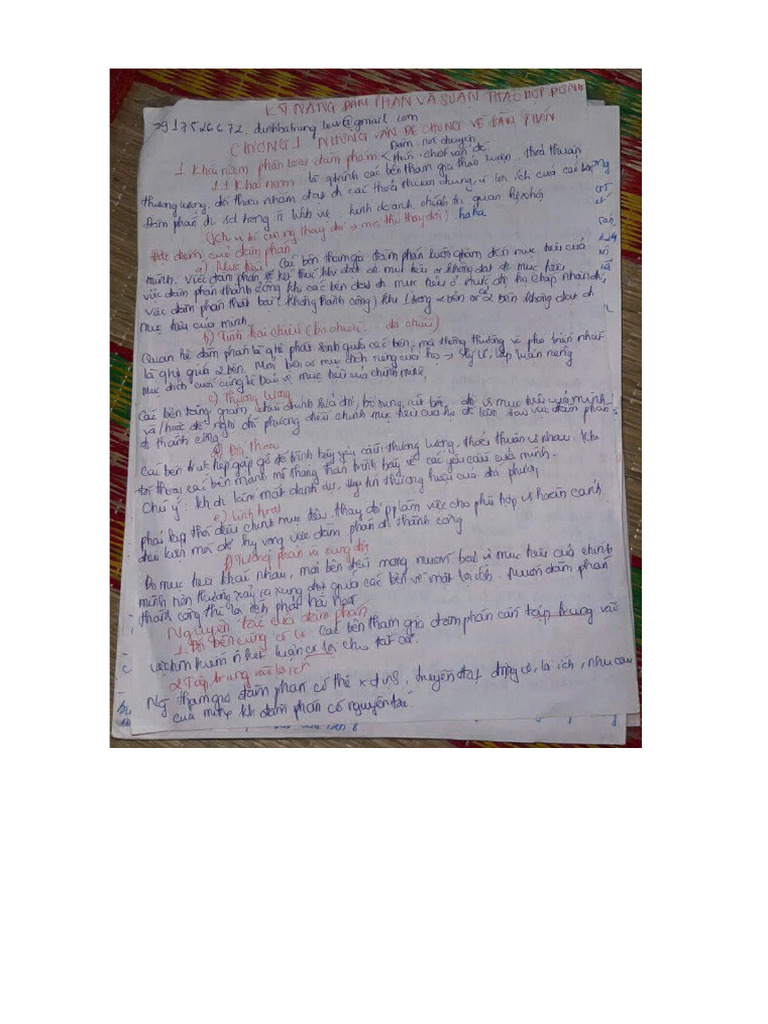 KỸ NĂNG ĐÀM PHÁN VÀ SOẠN THẢO HỢP ĐỒNG
CHƯƠNG 1 NHỮNG VẤN ĐỀ CHUNG VỀ ĐÀM PHÁN
Đàm: nói chuyện
1. Khái niệm, phân loại đàm phám < phán: chốt vấn đề
1.1 Khái niệm là qtrình các bên tham gia thảo luận, thoả thuận
thương lượng, nhằm đạt đc các thoả thuận chung, vì lợi ích của các bên
Đàm phán đc sd trong lĩnh vực kinh doanh, chính trị, quan hệ xhội
haha
Đặc điểm của đàm phán
a) Mục tiêu: Các bên tham gia đàm phán luôn quan tâm đến mục tiêu của
mình. Việc đàm phán sẽ kết thúc khi đạt đc mục tiêu or không đạt đc mục tiêu
việc đàm phán thành công khi các bên đạt đc mục tiêu ở mức độ họ chấp nhận đc,
việc đàm phán thất bại (không thành công) khi 1 trong 2 bên or cả 2 bên không đạt đc
mục tiêu của mình
b) Tính hai chiều (ba chiều... đa chiều)
Quan hệ đàm phán là qhệ phát sinh giữa các bên, mà thông thường và phổ biến nhất
là qhệ giữa 2 bên. Mỗi bên có mục đích riêng của họ → lý lẽ, lập luận riêng
Mục đích cuối cùng là bảo vệ mục tiêu của chính mình.
c) Thương lượng
Các bên tăng giảm, điều chỉnh sửa đổi, bổ sung, rút bớt, đối vs mục tiêu của mình
và/hoặc đề nghị đối phương điều chỉnh mục tiêu của họ để làm sao việc đàm phán
đc thành công.
d) Đối thoại
Các bên trực tiếp gặp gỡ để trình bày yêu cầu thương lượng, thoả thuận vs nhau. Khi
đối thoại các bên mạnh mẽ thẳng thắn trình bày về các yêu cầu của mình.
Chú ý: kh đc làm mất danh dự, uy tín thương hiệu của đối phương
e) Linh hoạt
phải kịp thời điều chỉnh mục tiêu, thay đổi p làm việc cho phù hợp vs hoàn cảnh
điều kiện mới để hy vọng việc đàm phán đc thành công
Do mục tiêu khác nhau, mỗi bên đều mong muốn bảo vệ mục tiêu của chính
mình nên thường xảy ra xung đột giữa các bên về mặt lợi ích. Muốn đàm phán
thành công thì lợi ích phải hài hoà
Nguyên tắc của đàm phán
1. Đôi bên cùng có lợi Các bên tham gia đàm phán cần tập trung vào
việc tìm kiếm kết luận có lợi cho tất cả.
2 Tập trung vào lợi ích
Ng tham gia đàm phán có thể xđịnh, truyền đạt động cơ, lợi ích, nhu cầu
của mình khi đàm phán có nguyên tắc